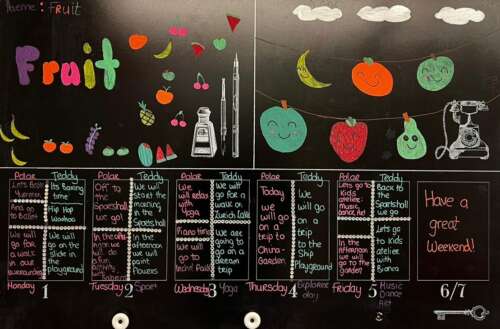 Theme: Fruit
Fruit
Polar
Teddy
Its Boxing time
Hip Hop Workout
We will go for a walk in our surroundings
We will go on the slide in the playground
Monday
1
Polar
Teddy
Off to the Sportshall we go!
We will start the morning in the Sportshall
In the afternoon we will
In the afternoon we will paint flowers
Tuesday
2
Sport
Polar
Teddy
We will relax with Yoga
We will go for a walk on
Piano time
We will go to
We are going to go on a trip
Wednesday
3
Yoga
Polar
Teddy
Today we will go on a trip to China-Garden
We will go on a trip to the Ship Playground
Thursday
4
Explorer day
Polar
Teddy
Lets go to kids atelier: music, dance, Art
Back to the Sportshall we go
In the afternoon we will go to the garden
Lets go to kids atelier with Bianca
Friday
5
Music
Dance
Art
Have a
great
Weekend!
6/7